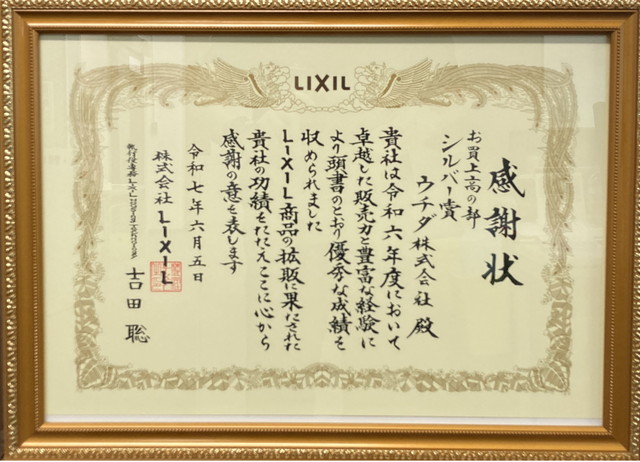 LIXIL
感謝状
お買上高の部
シルバー賞
ウチダ株式会社 殿
貴社は令和六年度において
卓越した販売力と豊富な経験に
より頭書のとおり優秀な成績を
収められました
LIXIL商品の拡販に果たされた
貴社の功績をたたえここに心から
感謝の意を表します
令和七年六月五日
株式会社 LIXIL
吉田 聡